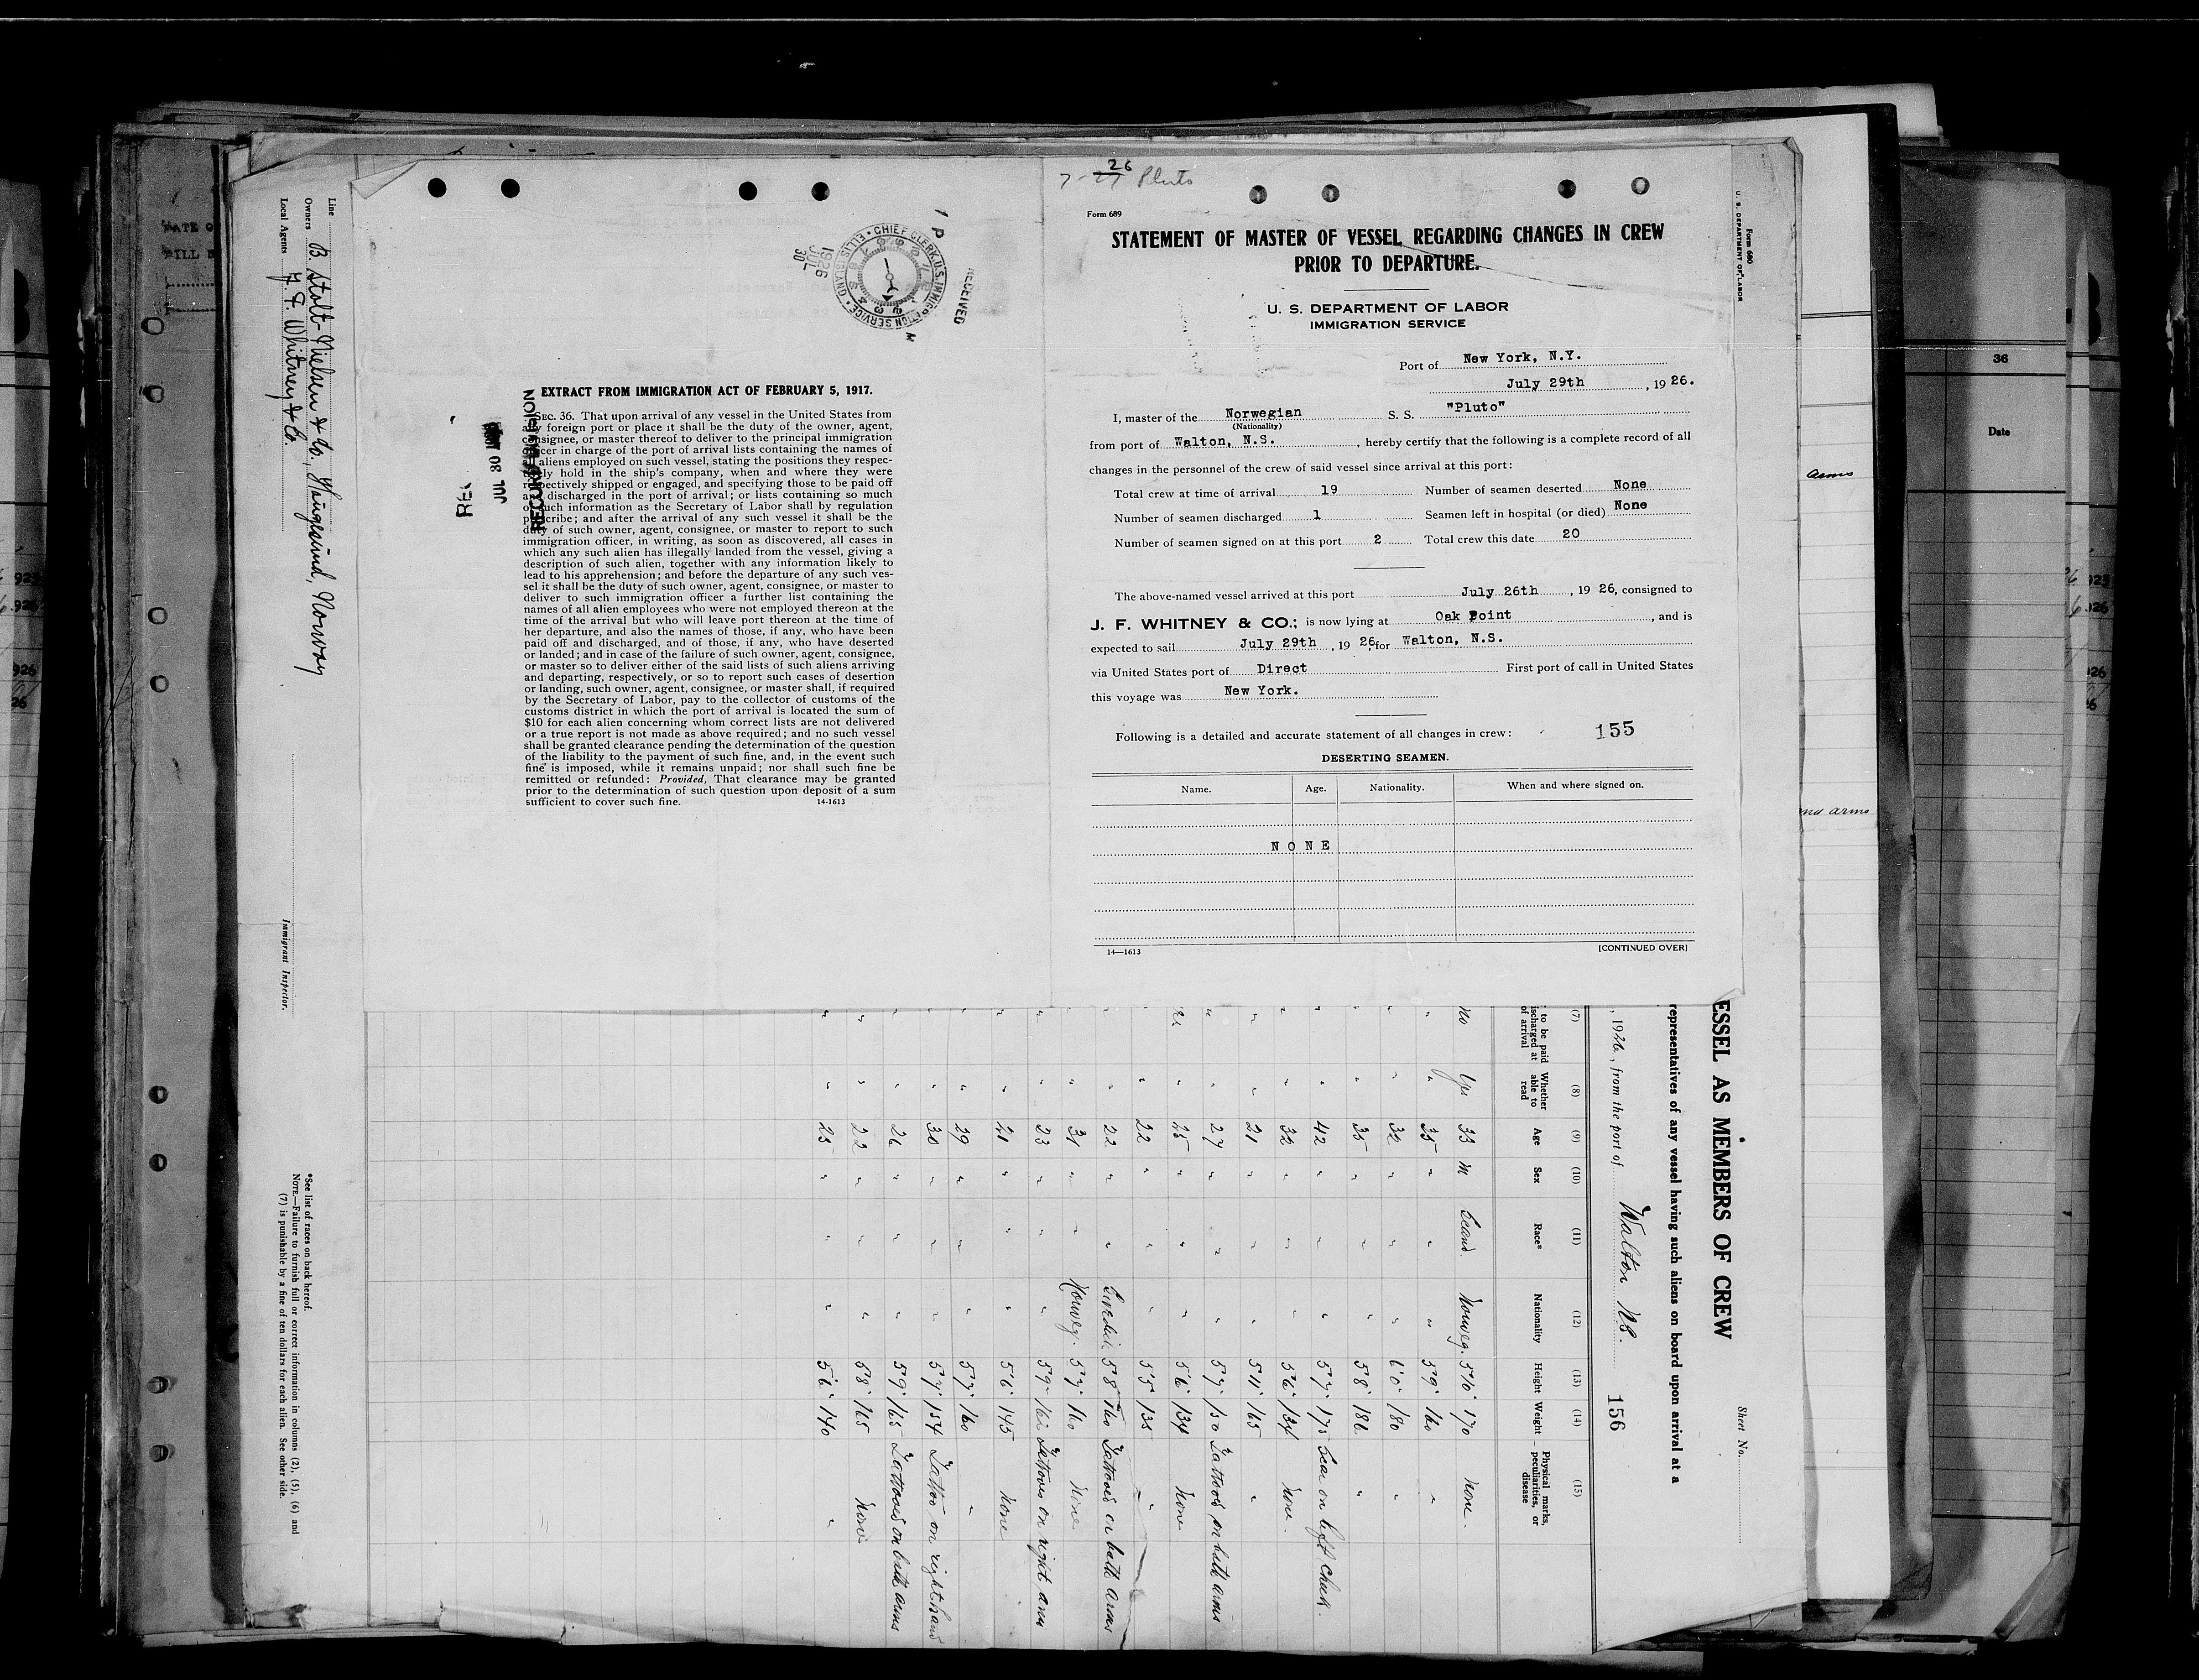 26
7-27 Pluto
Form 689
STATEMENT OF MASTER OF VESSEL REGARDING CHANGES IN CREW
PRIOR TO DEPARTURE.
U. S. DEPARTMENT OF LABOR
IMMIGRATION SERVICE
Port of New York, N.Y.
July 29th, 1926.
I, master of the Norwegian S. S. "Pluto"
(Nationality)
from port of Walton, N.S., hereby certify that the following is a complete record of all
changes in the personnel of the crew of said vessel since arrival at this port:
Total crew at time of arrival 19 Number of seamen deserted None
Number of seamen discharged 1 Seamen left in hospital (or died) None
Number of seamen signed on at this port 2 Total crew this date 20
The above-named vessel arrived at this port July 26th, 1926, consigned to
J. F. WHITNEY & CO.; is now lying at Oak Point, and is
expected to sail July 29th, 1926 for Walton, N.S.
via United States port of Direct First port of call in United States
this voyage was New York.
Following is a detailed and accurate statement of all changes in crew:
155
DESERTING SEAMEN.
Name. Age. Nationality. When and where signed on.
NONE
14—1613 [CONTINUED OVER]
RECEIVED
CHIEF CLERK, U.S. IMMIGRATION SERVICE ELLIS ISLAND
1926 JUL 30
JUL 30
RECORD DIVISION
EXTRACT FROM IMMIGRATION ACT OF FEBRUARY 5, 1917.
SEC. 36. That upon arrival of any vessel in the United States from
any foreign port or place it shall be the duty of the owner, agent,
consignee, or master thereof to deliver to the principal immigration
officer in charge of the port of arrival lists containing the names of
aliens employed on such vessel, stating the positions they respec-
tively hold in the ship's company, when and where they were
respectively shipped or engaged, and specifying those to be paid off
and discharged in the port of arrival; or lists containing so much
of such information as the Secretary of Labor shall by regulation
prescribe; and after the arrival of any such vessel it shall be the
duty of such owner, agent, consignee, or master to report to such
immigration officer, in writing, as soon as discovered, all cases in
which any such alien has illegally landed from the vessel, giving a
description of such alien, together with any information likely to
lead to his apprehension; and before the departure of any such ves-
sel it shall be the duty of such owner, agent, consignee, or master to
deliver to such immigration officer a further list containing the
names of all alien employees who were not employed thereon at the
time of the arrival but who will leave port thereon at the time of
her departure, and also the names of those, if any, who have been
paid off and discharged, and of those, if any, who have deserted
or landed; and in case of the failure of such owner, agent, consignee,
or master so to deliver either of the said lists of such aliens arriving
and departing, respectively, or so to report such cases of desertion
or landing, such owner, agent, consignee, or master shall, if required
by the Secretary of Labor, pay to the collector of customs of the
customs district in which the port of arrival is located the sum of
$10 for each alien concerning whom correct lists are not delivered
or a true report is not made as above required; and no such vessel
shall be granted clearance pending the determination of the question
of the liability to the payment of such fine, and, in the event such
fine is imposed, while it remains unpaid; nor shall such fine be
remitted or refunded: Provided, That clearance may be granted
prior to the determination of such question upon deposit of a sum
sufficient to cover such fine. 14-1613
Form 680
U. S. DEPARTMENT OF LABOR
Sheet No.
ESSEL AS MEMBERS OF CREW
representatives of any vessel having such aliens on board upon arrival at a
, 1926, from the port of Walton NS. 156
(7) (8) (9) (10) (11) (12) (13) (14) (15)
to be paid discharged at of arrival
Whether able to read
Age
Sex
Race*
Nationality
Height
Weight
Physical marks, peculiarities, or disease
no Yes 33 m Scand. Norweg. 5'10" 170 None.
" " 35 " " " 5'9" 160 "
" 32 " " " 6'0" 180 "
" 35 " " " 5'8" 186 "
" " 42 " " " 5'7" 175 Scar on left Cheek.
" " 32 " " " 5'6" 134 None.
" " 21 " " " 5'11" 165 "
" " 27 " " " 5'7" 150 Tattoos on both arms
" 25 " " " 5'6" 134 None
" " 22 " " " 5'5" 135 "
" " 22 " " Swedish 5'8" 160 Tattoos on both arms
" " 31 " " Norweg. 5'7" 160 None
" " 23 " " " 5'9" Tattoos on right arm
" " 21 " " " 5'6" 145 None
" " 29 " " " 5'7" 160 "
" " 30 " " " 5'7" 154 Tattoo on right hand
" " 26 " " " 5'9" 165 Tattoos on both arms
" " 22 " " " 5'8" 165 None
" " 25 " " " 5'6" 140 "
Line
Owners B. Stolt-Nielsen & Co., Haugesund, Norway
Local Agents J. F. Whitney & Co.
Immigrant Inspector.
*See list of races on back hereof.
NOTE.—Failure to furnish full or correct information in columns (2), (5), (6) and
(7) is punishable by a fine of ten dollars for each alien. See other side.
36
Date
arms
and arms